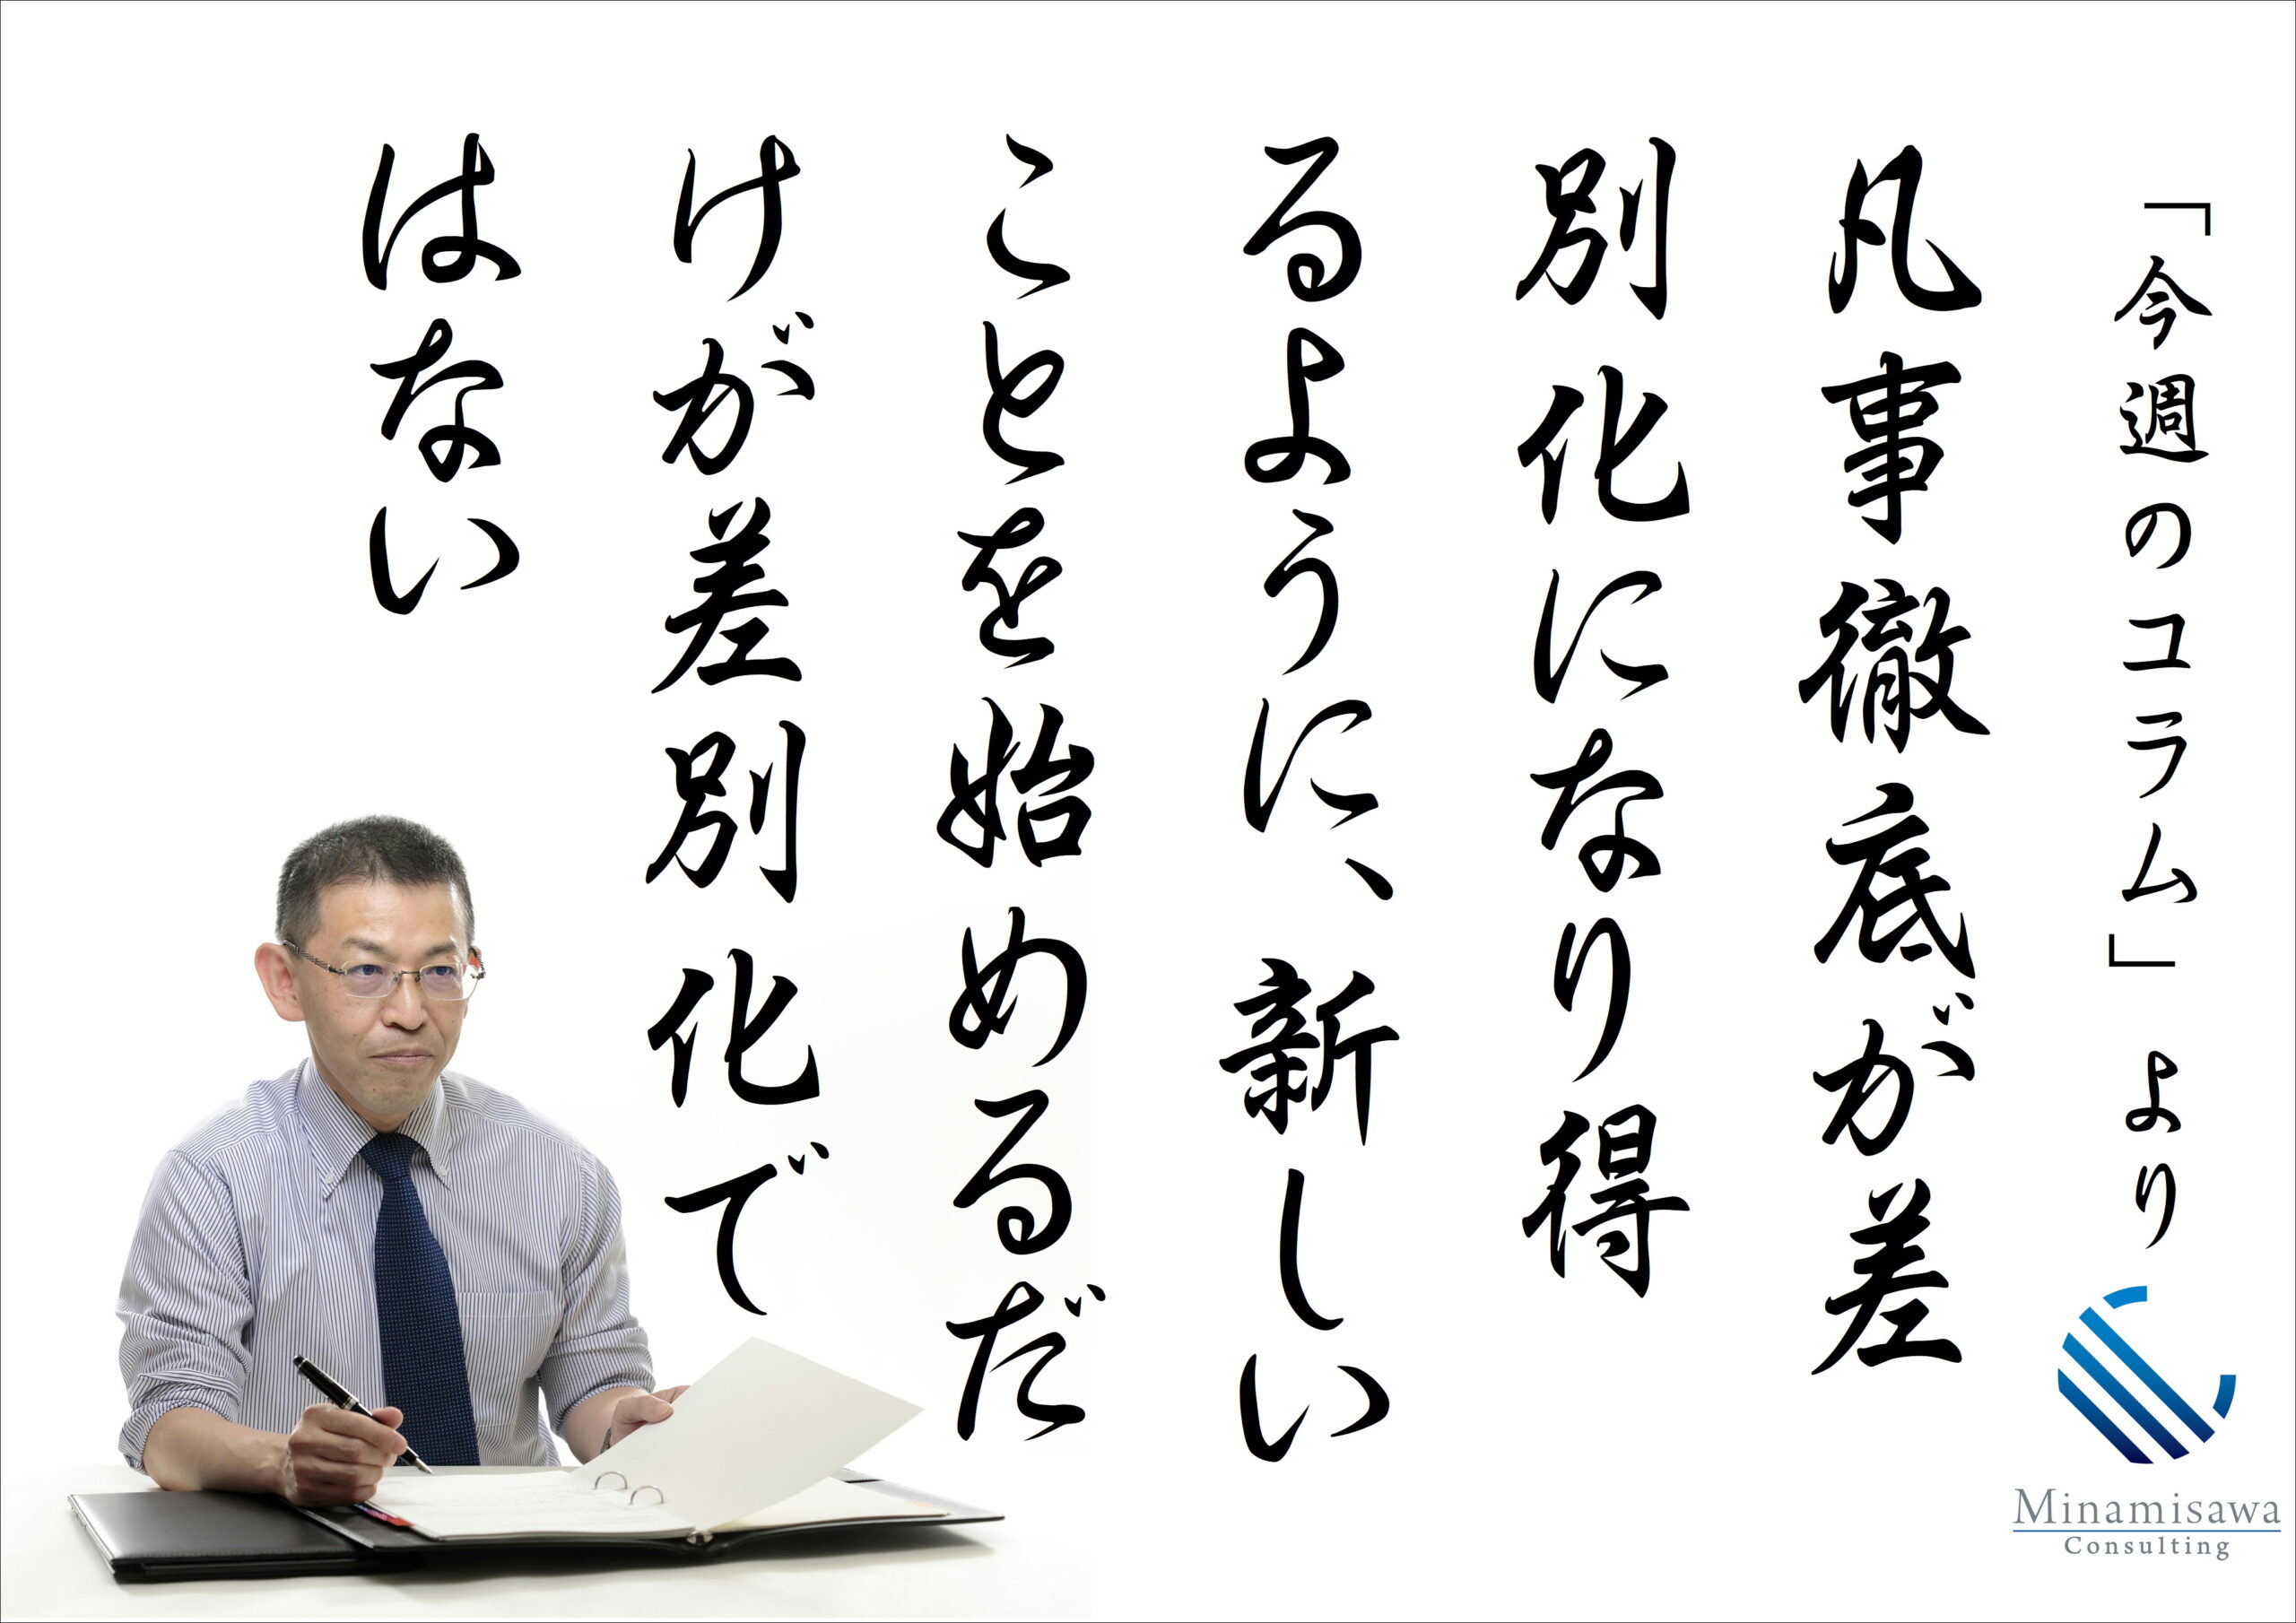 「今週のコラム」より
凡事徹底が差
別化になり得
るように、新しい
ことを始めるだ
けが差別化で
はない
Minamisawa
Consulting